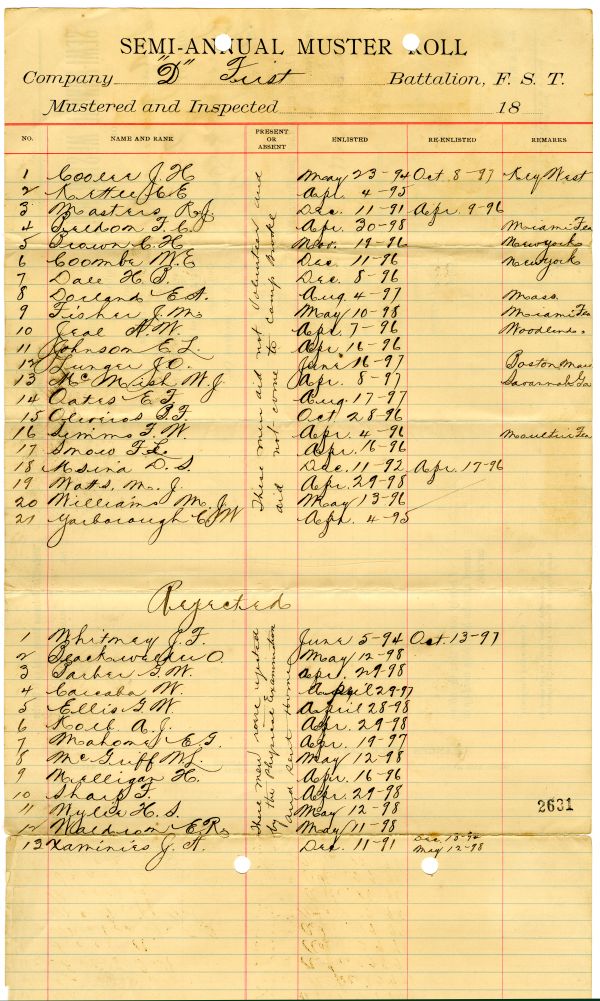 SEMI-ANNUAL MUSTER ROLL
Company "D" First Battalion, F. S. T.
Mustered and Inspected 18
NO. NAME AND RANK PRESENT OR ABSENT ENLISTED RE-ENLISTED REMARKS
These men did not Volunteer and did not come to Camp
1 J. H May 23-94 Oct. 8-97 Key West
2 H E Apr. 4-95
3 Masters R. J. Dec. 11-91 Apr. 9-96
4 F. C. Apr. 30-98 Miami Fla
5 Brown C. H Nov. 19-96 New York
6 Coombs W. E Dec. 11-96 New York
7 Dale H. B. Dec. 8-96
8 Dorland E. A. Aug 4-97 Mass.
9 Fisher J. M. May 10-98 Miami Fla
10 H. W. Apr. 7-96
11 Johnson E. L. Apr. 16-96
12 J. O. June 16-97 Boston Mass
13 W. J. Apr. 8-97 Savannah Ga
14 Oates E. F. Aug 17-97
15 Oliveros B. F. Oct 28-96
16 Simms F. W. Apr. 4-96 Fla
17 Snow F. L. Apr. 16-96
18 Usina D. S. Dec. 11-92 Apr. 17-96
19 Watts M. J. Apr. 29-98
20 Williams M. J. May 13-96
21 Yarborough C. W Apr. 4-95
Rejected
These men were rejected by the Physical Examination and sent Home
1 Whitney J. F. June 5-94 Oct. 13-97
2 O. May 12-98
3 Barber G. W. Apr. 29-98
4 Carcaba W. April 29-97
5 Ellis G. W April 28-98
6 Kolb A. J. Apr. 29-98
7 E. G. Apr. 19-97
8 McGriff May 12-98
9 Milligan H. Apr. 16-96
10 Sharp F. Apr. 29-98
11 Wylie H. S. May 12-98
12 Waldron E. R. May 11-98
2631
13 Xaminies J. A. Dec. 11-91 Dec. 18-94
May 12-98